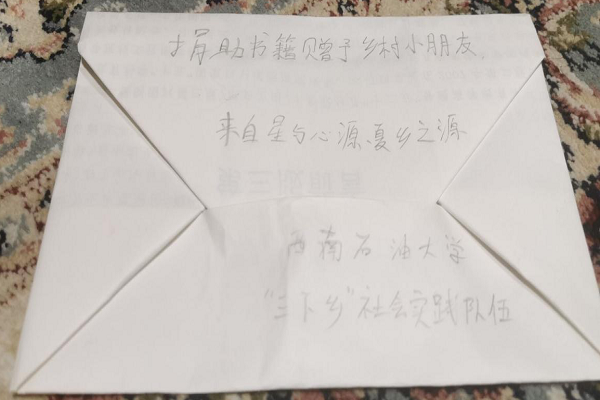 捐助书籍赠予乡村小朋友.
来自星与心源,夏乡之源
西南石油大学
“三下乡”社会实践队伍